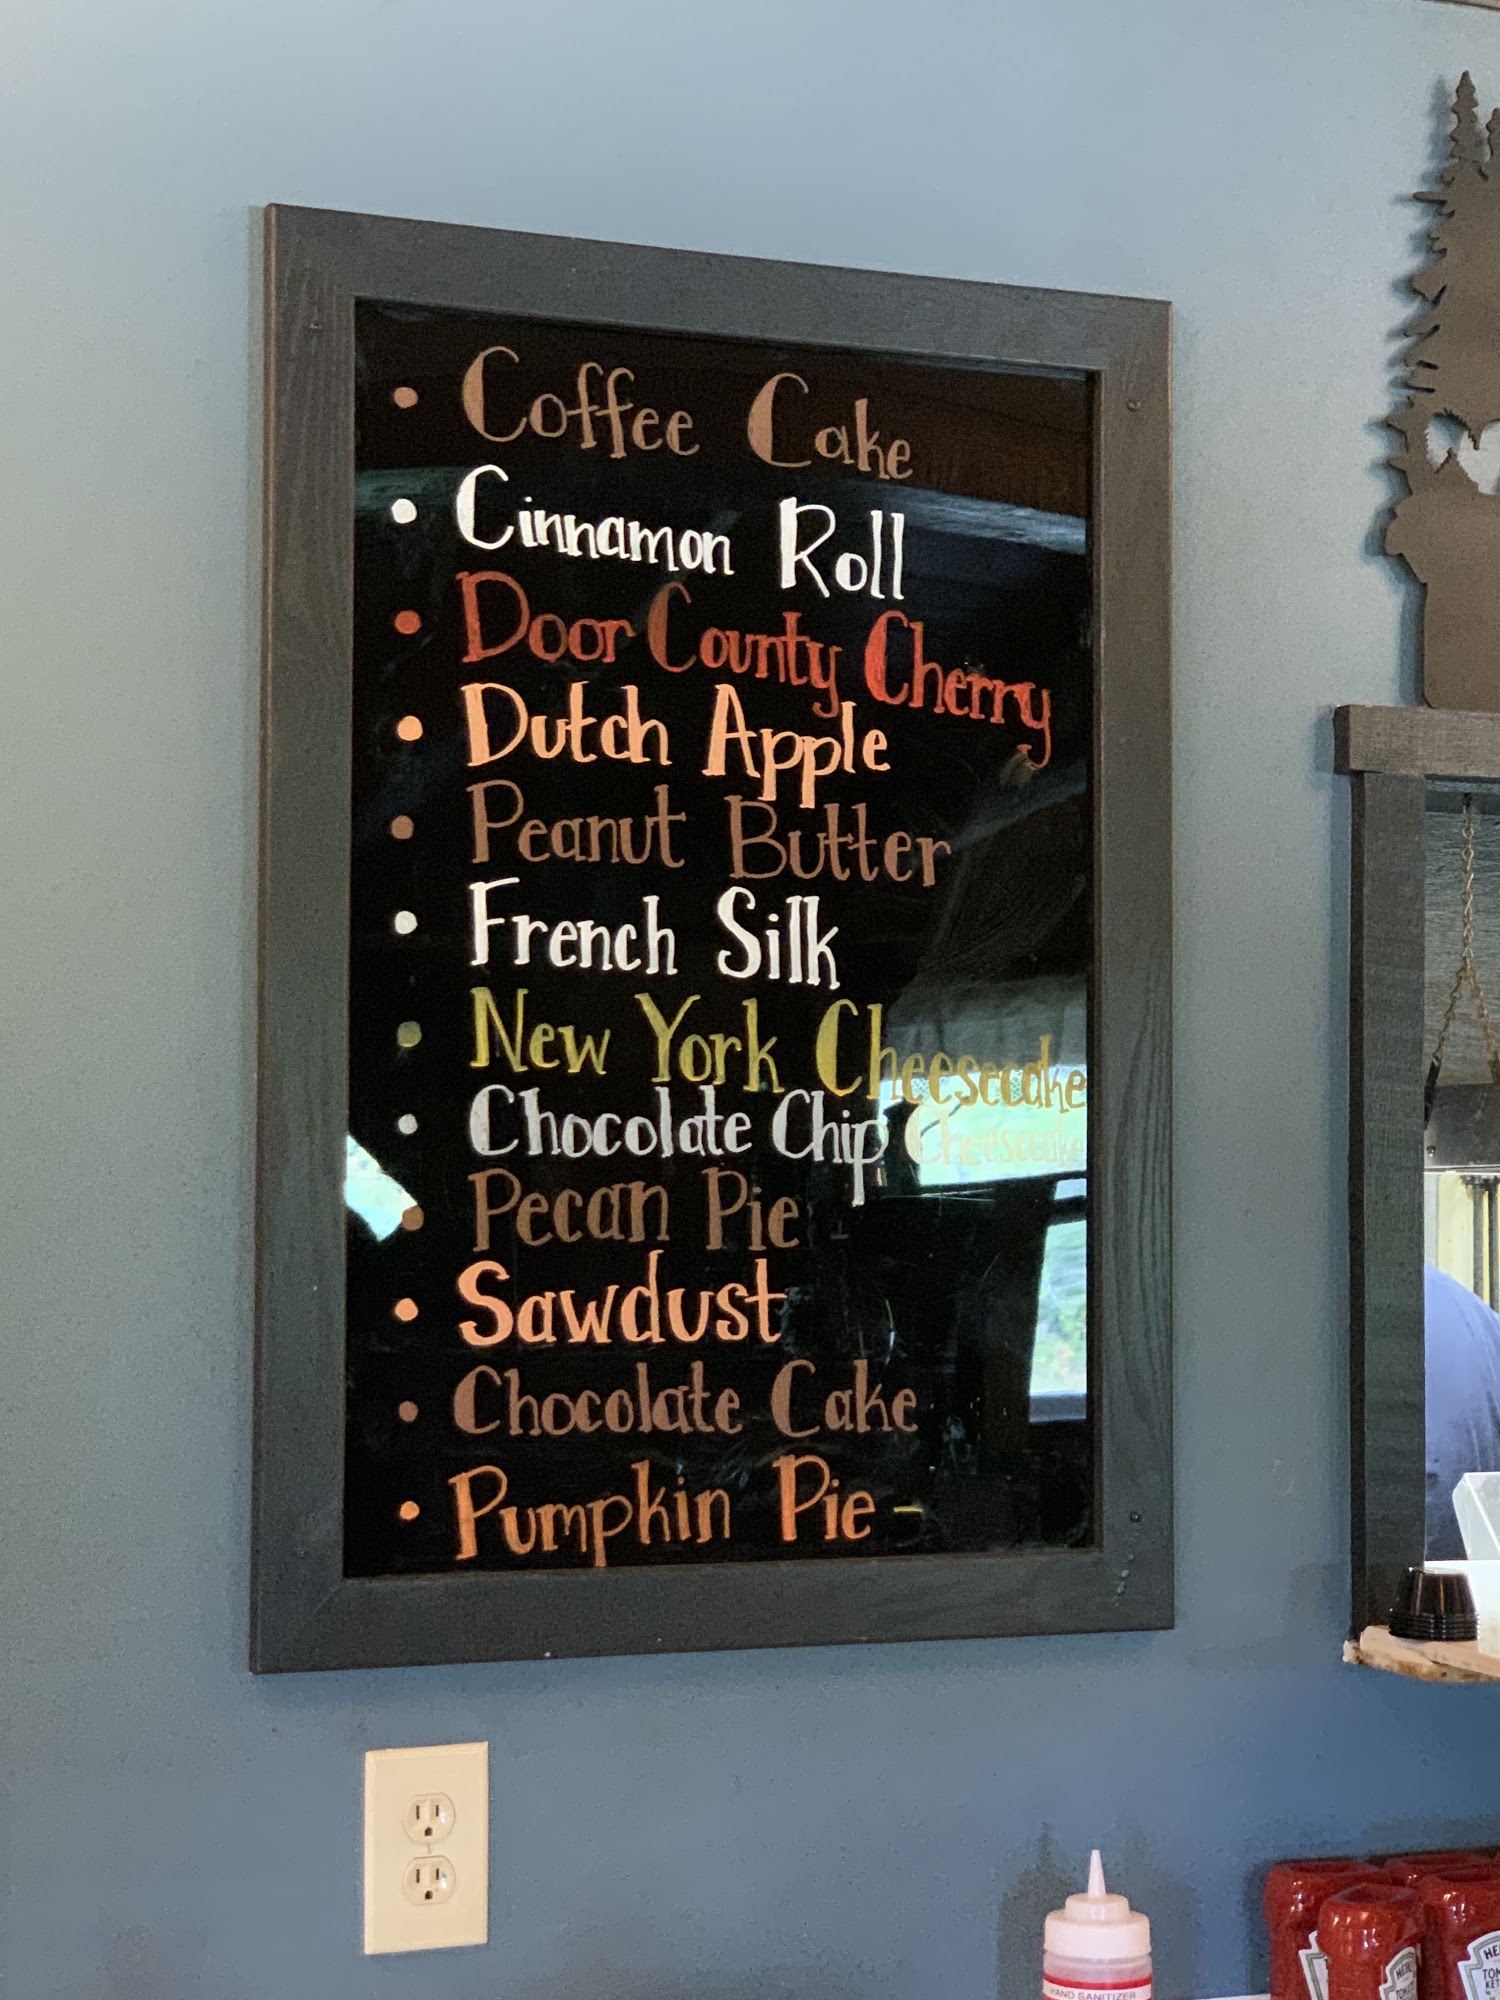 • Coffee Cake
• Cinnamon Roll
• Door County Cherry
• Dutch Apple
• Peanut Butter
• French Silk
• New York Cheesecake
• Chocolate Chip Cheesecake
• Pecan Pie
• Sawdust
• Chocolate Cake
• Pumpkin Pie -
HAND SANITIZER
HEINZ